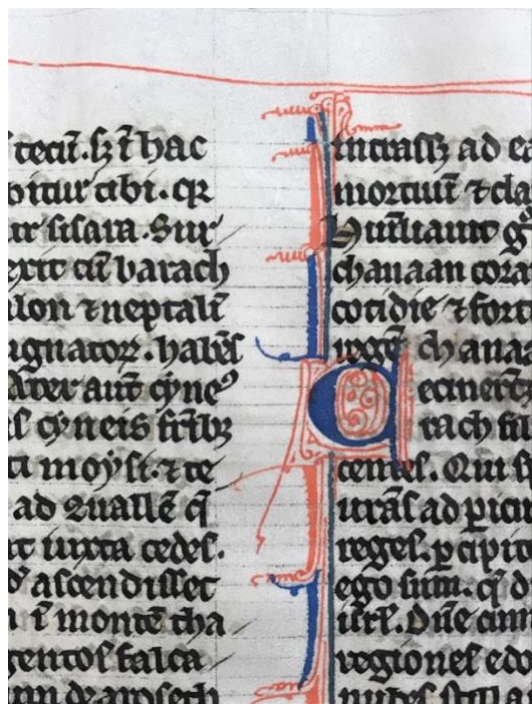 tecū. sʒ ī hac
oitur tibi. qꝛ
ur sisara. Sur
exit cū barach
lon ⁊ neptalī
ugnatoꝝ. habēs
at̄er aut̄ cyneꝰ
s cyneis fr̄ibꝫ
ti moysi. ⁊ te
ad uallē q̄
t iuxta cedes.
ascendisset
ī monte tha
gentos falca
intrassꝫ ad eā
mortuū ⁊ cla
Humiliauit g
chanaan corā
cotidie ⁊ fort
regē chanaa
Cecinerūt
rach fil
centes. Qui sp
urās ad pericu
reges. ꝑcipite
ego sum. q̄ d
isrl. Dn̄e cum
regiones edo
nubes still a